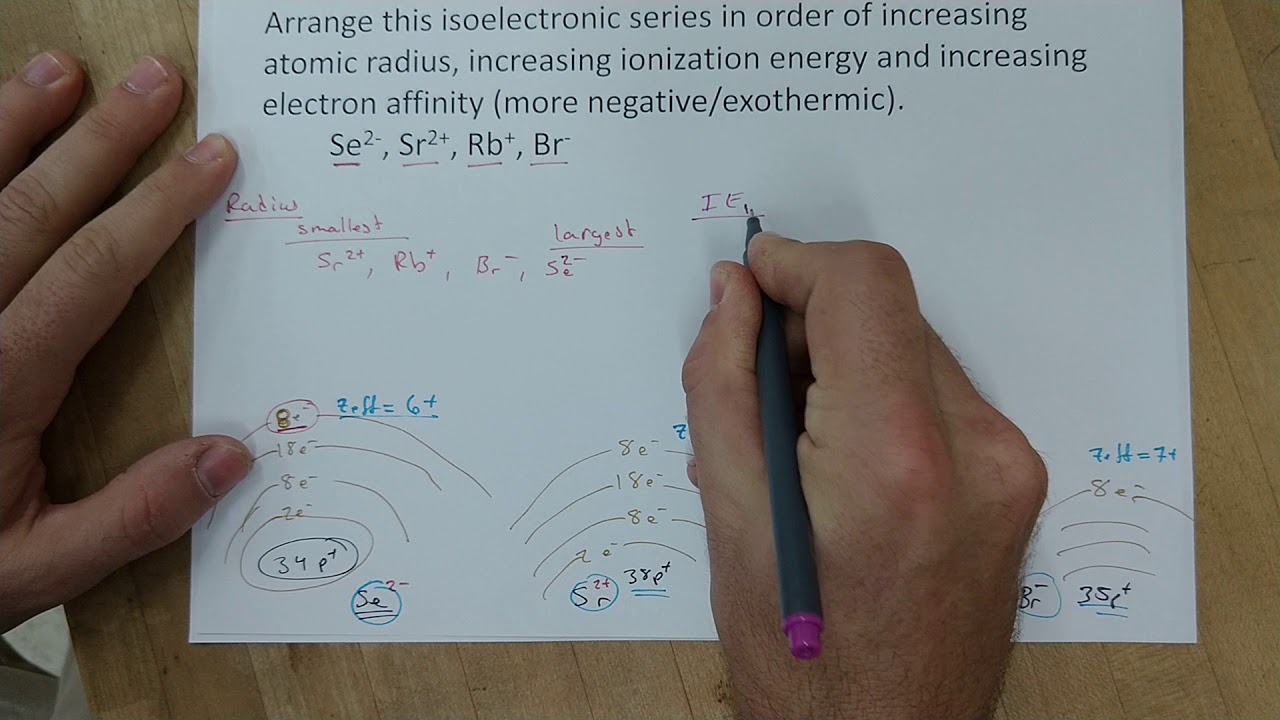 Arrange this isoelectronic series in order of increasing
atomic radius, increasing ionization energy and increasing
electron affinity (more negative/exothermic).
Se²⁻, Sr²⁺, Rb⁺, Br⁻
Radius
smallest
largest
Sr²⁺, Rb⁺, Br⁻, Se²⁻
IE₁
8e⁻ Zeff = 6+
18e⁻
8e⁻
2e⁻
34p⁺
Se²⁻
8e⁻
18e⁻
8e⁻
2e⁻
Sr²⁺ 38p⁺
Zeff = 7+
8e⁻
Br⁻ 35p⁺